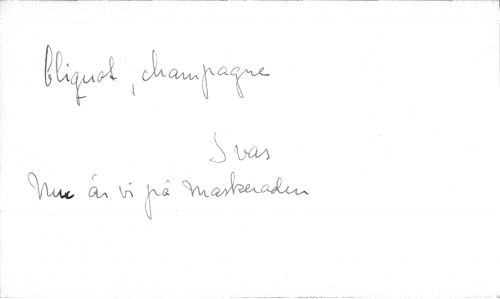 Cliquot, champagne
Svas
Nu är vi på maskeraden